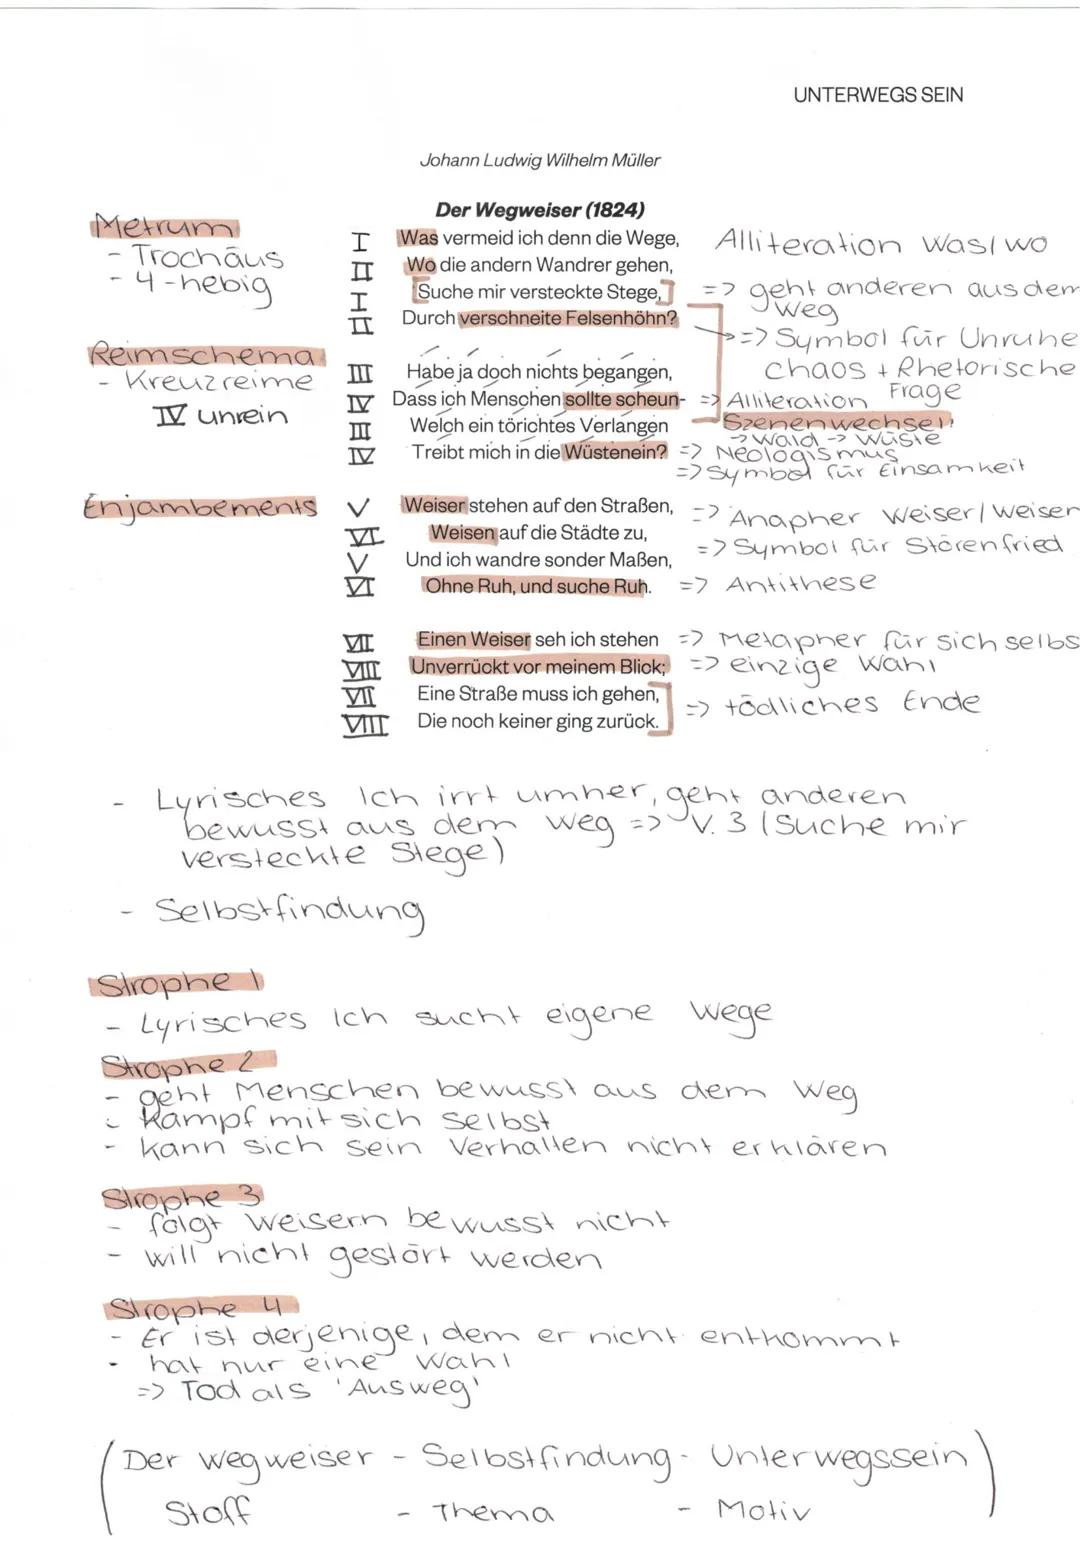 UNTERWEGS SEIN
Johann Ludwig Wilhelm Müller
Der Wegweiser (1824)
Metrum
- Trochäus
- 4-hebig
Reimschema
- Kreuzreime
IV unrein
Enjambements
I Was vermeid ich denn die Wege, Alliteration Was/wo
II Wo die andern Wandrer gehen,
I [Suche mir versteckte Stege,] => geht anderen aus dem Weg
II Durch verschneite Felsenhöhn? => Symbol für Unruhe
chaos + Rhetorische Frage
III Habe ja doch nichts begangen,
IV Dass ich Menschen sollte scheun- => Alliteration
III Welch ein törichtes Verlangen Szenenwechsel!
-> Wald -> Wüste
IV Treibt mich in die Wüstenein? => Neologismus
=> Symbol für Einsamkeit
V Weiser stehen auf den Straßen, => Anapher Weiser/Weisen
VI Weisen auf die Städte zu, => Symbol für Störenfried
V Und ich wandre sonder Maßen,
VI Ohne Ruh, und suche Ruh. => Antithese
VII Einen Weiser seh ich stehen => Metapher für sich selbs
VIII Unverrückt vor meinem Blick; => einzige Wahl
VII Eine Straße muss ich gehen,
VIII Die noch keiner ging zurück.] => tödliches Ende
- Lyrisches Ich irrt umher, geht anderen
bewusst aus dem Weg => V. 3 (Suche mir
versteckte Stege)
- Selbstfindung
Strophe 1
- Lyrisches Ich sucht eigene Wege
Strophe 2
- geht Menschen bewusst aus dem Weg
- Kampf mit sich selbst
- kann sich sein Verhalten nicht erklären
Strophe 3
- folgt Weisern bewusst nicht
- will nicht gestört werden
Strophe 4
- Er ist derjenige, dem er nicht entkommt
- hat nur eine Wahl
=> Tod als 'Ausweg'
(Der Wegweiser - Selbstfindung - Unterwegssein)
Stoff - Thema - Motiv